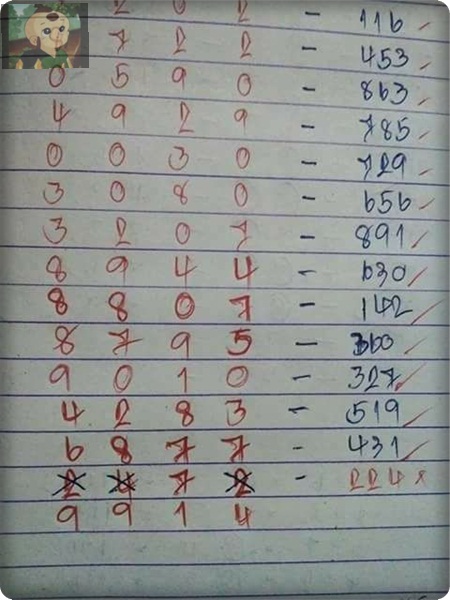 2 0 2 - 116
7 2 2 - 453
0 5 9 0 - 863
4 9 2 9 - 785
0 0 3 0 - 729
3 0 8 0 - 656
3 2 0 7 - 891
8 9 4 4 - 630
8 8 0 7 - 142
8 7 9 5 - 360
9 0 1 0 - 327
4 2 8 3 - 519
6 8 7 7 - 431
2 4 7 2 - 224 x
9 9 1 4